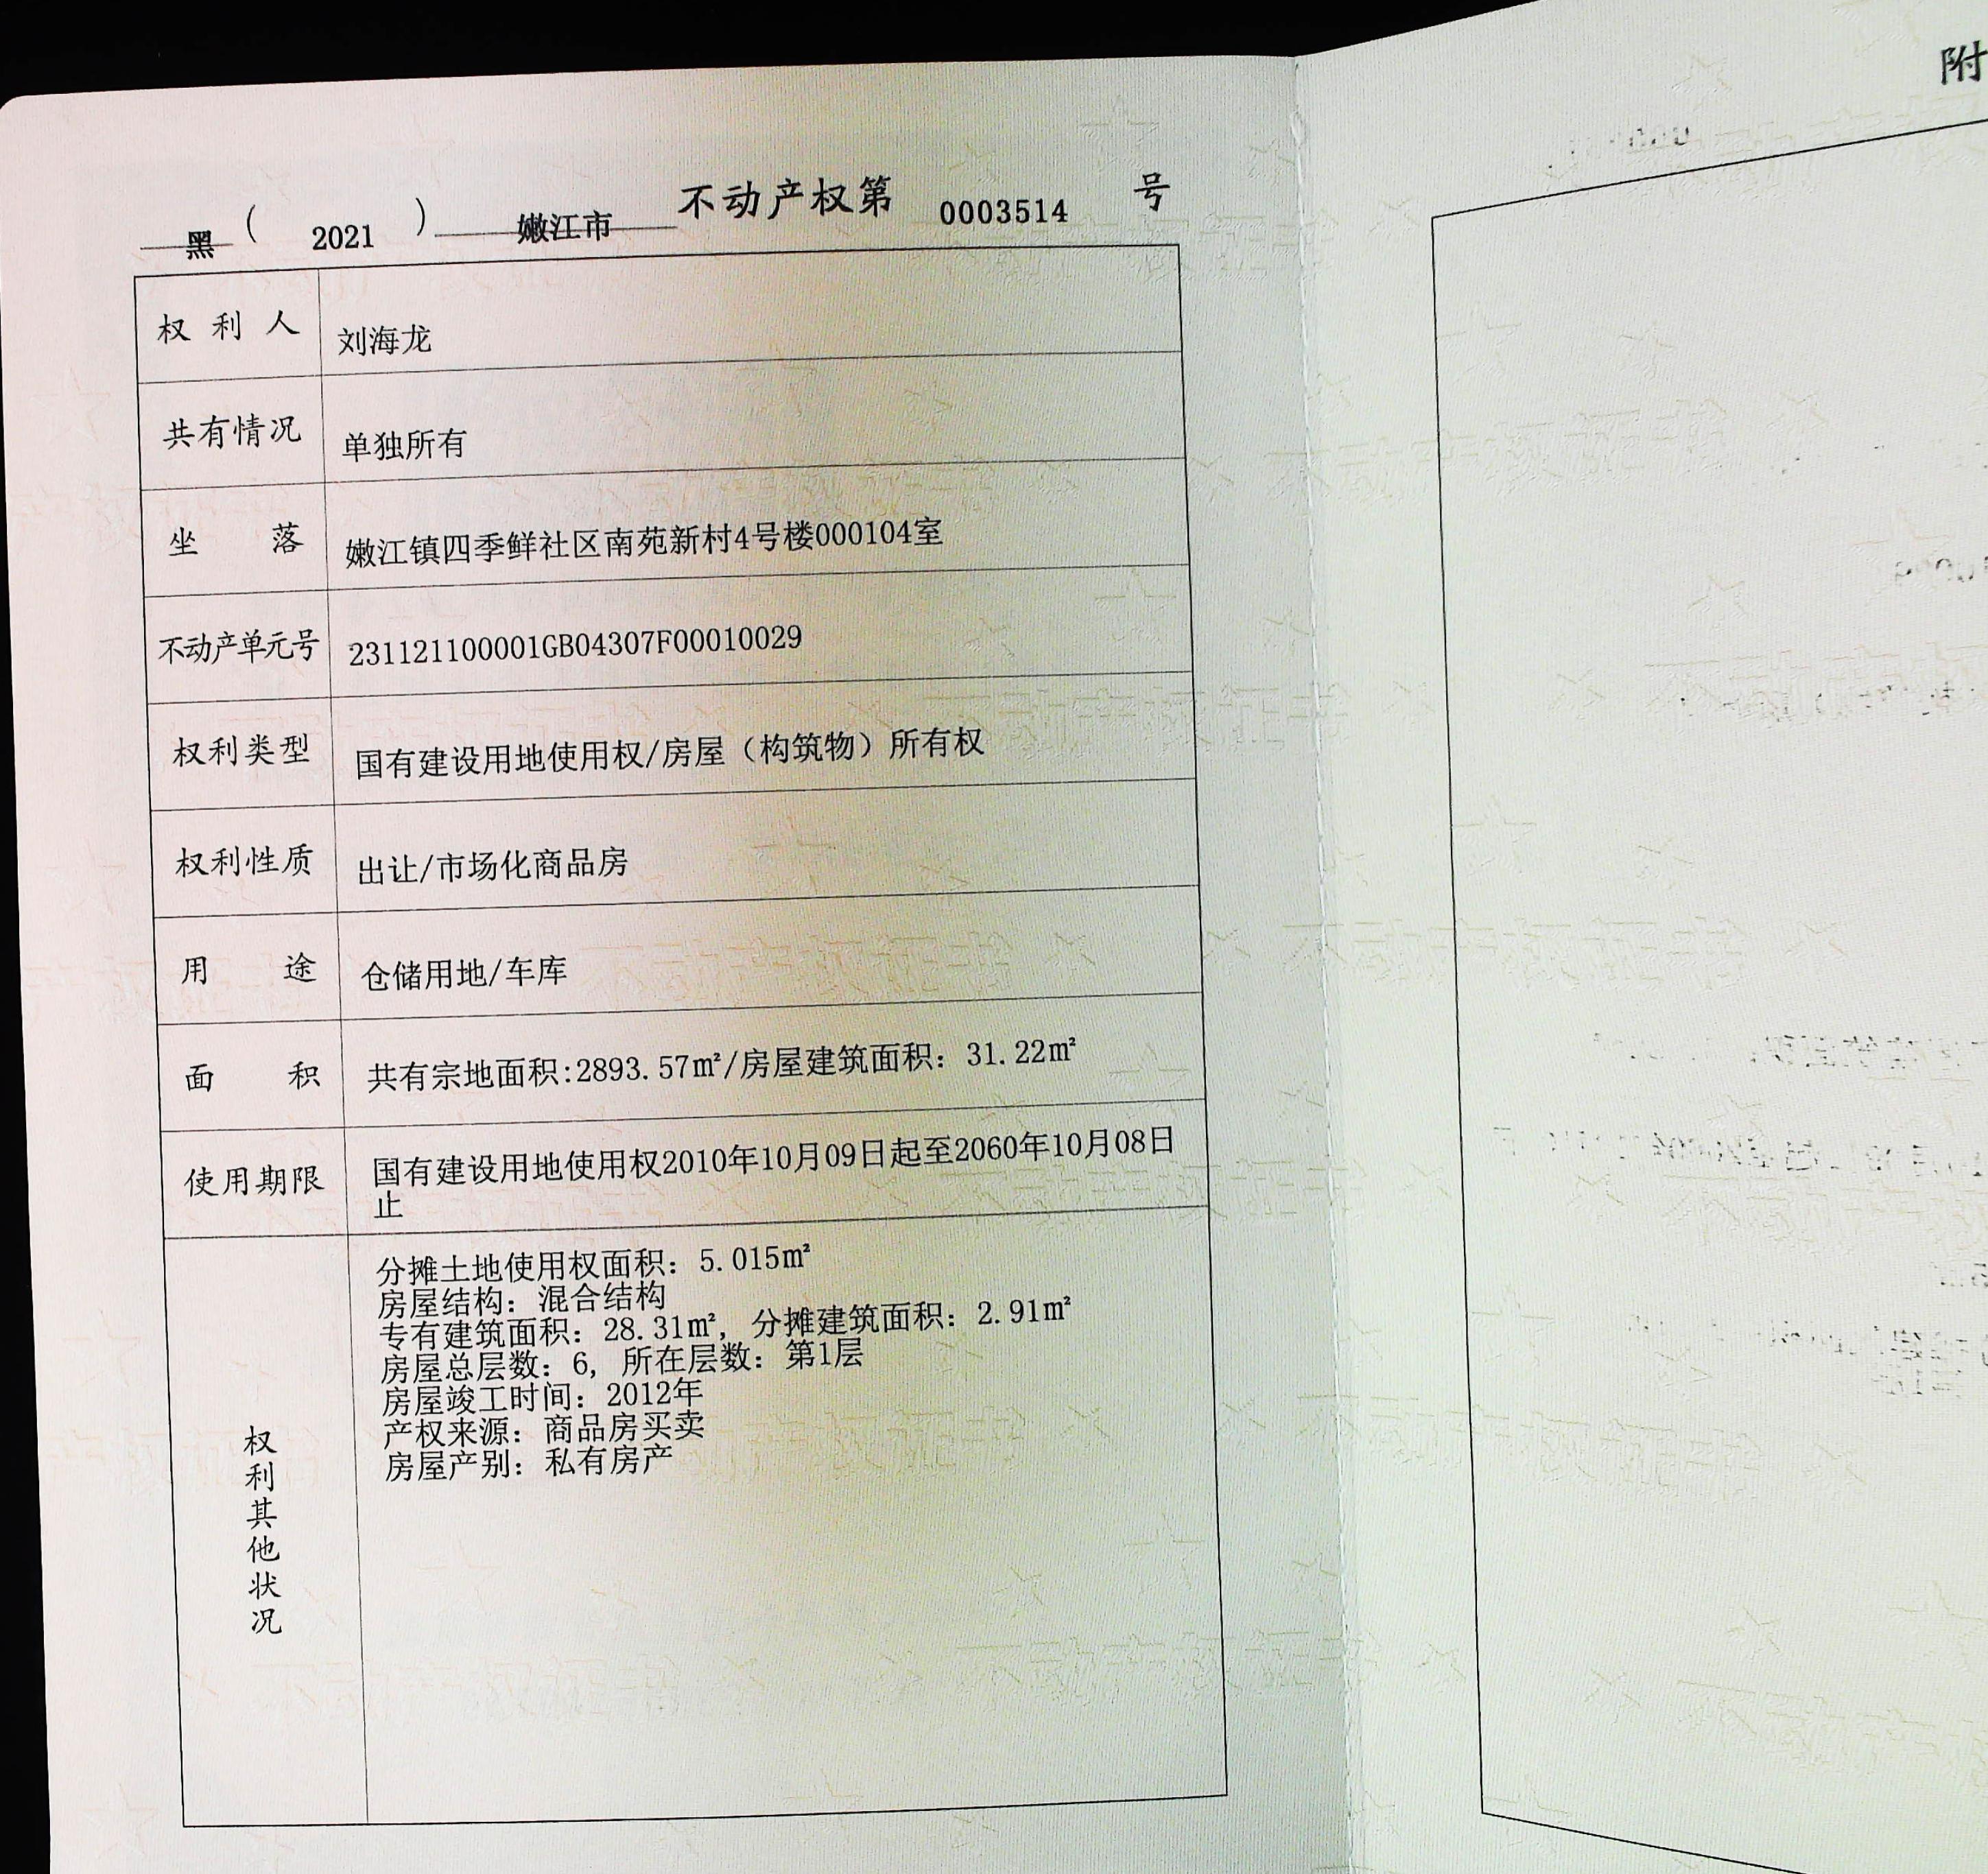 黑（2021）嫩江市不动产权第0003514号
权利人 刘海龙
共有情况 单独所有
坐落 嫩江镇四季鲜社区南苑新村4号楼000104室
不动产单元号 231121100001GB04307F00010029
权利类型 国有建设用地使用权/房屋（构筑物）所有权
权利性质 出让/市场化商品房
用途 仓储用地/车库
面积 共有宗地面积:2893.57㎡/房屋建筑面积：31.22㎡
使用期限 国有建设用地使用权2010年10月09日起至2060年10月08日
止
权利其他状况
分摊土地使用权面积：5.015㎡
房屋结构：混合结构
专有建筑面积：28.31㎡，分摊建筑面积：2.91㎡
房屋总层数：6，所在层数：第1层
房屋竣工时间：2012年
产权来源：商品房买卖
房屋产别：私有房产
附